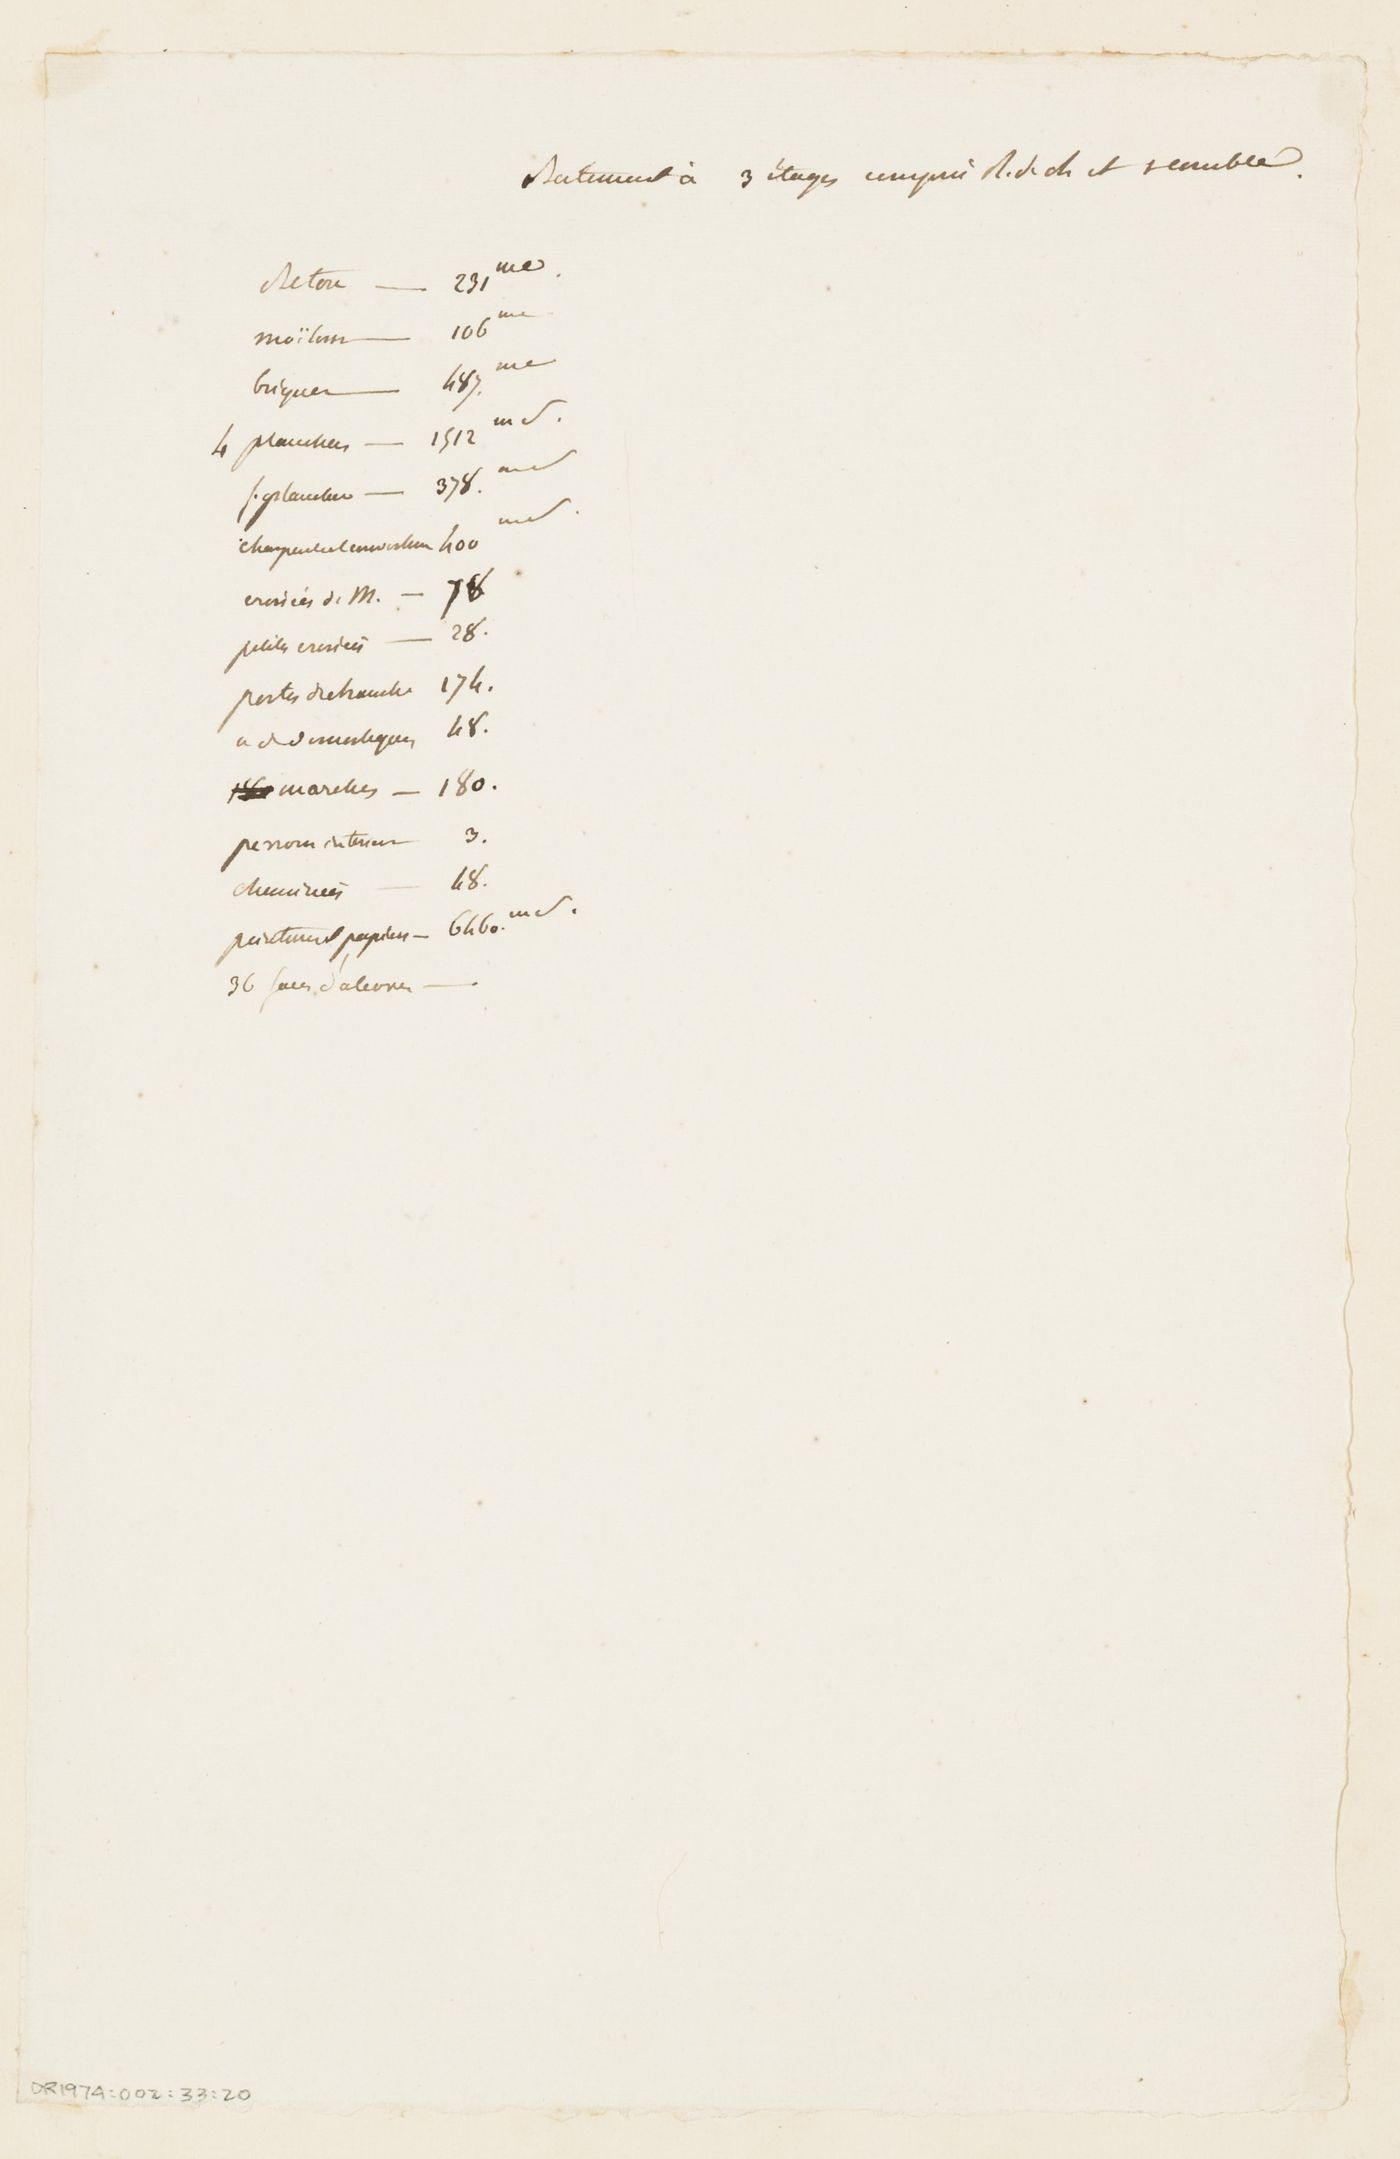 Batiment à 3 étages compris R. de ch et comble.
Beton — 231 mc.
moïlon — 106 mc
briques — 487. mc
4 planchers — 1512 md.
f. planchers — 378. md
charpente et couverture 400 md.
croisées de M. — 78
petites croisées — 28.
portes de chambre 174.
a d domestiques 48.
marches — 180.
perrons interieur 3.
cheminées — 48.
peinture et papiers — 6460. md.
36 faces d'alcoves —
DR1974:002:33:20